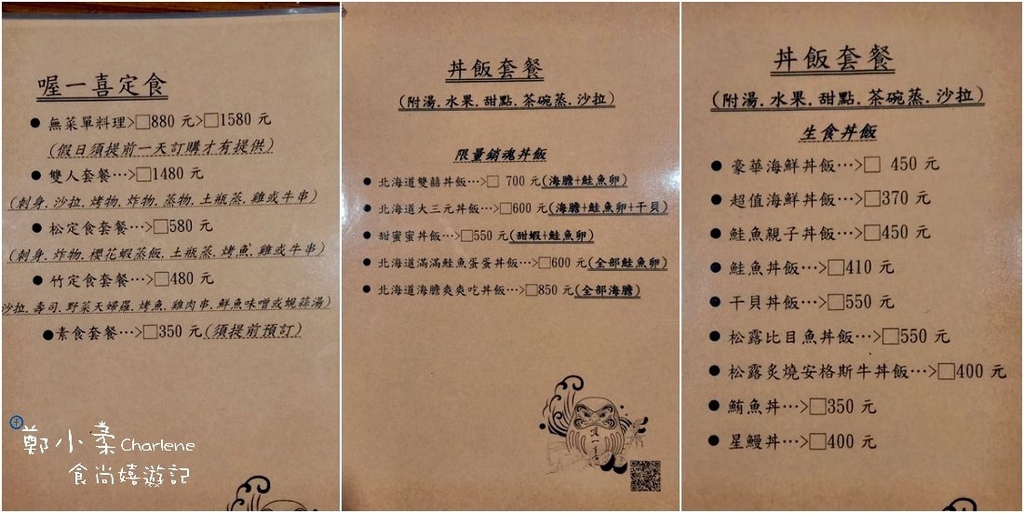 喔一喜定食
●無菜單料理>□880 元>□1580 元
(假日須提前一天訂購才有提供)
●雙人套餐…>□1480 元
(刺身.沙拉.烤物.炸物.蒸物.土瓶蒸.雞或牛串)
●松定食套餐…>□580 元
(刺身.炸物.櫻花蝦蒸飯.土瓶蒸.烤魚.雞或牛串)
●竹定食套餐…>□480 元
沙拉.壽司.野菜天婦羅.烤魚.雞肉串.鮮魚味噌或蜆蒜湯)
●素食套餐…>□350 元(須提前預訂)
鄭小柔Charlene
食尚嬉遊記
丼飯套餐
(附湯.水果.甜點.茶碗蒸.沙拉)
限量銷魂丼飯
●北海道雙囍丼飯…>□ 700 元(海膽+鮭魚卵)
●北海道大三元丼飯…>□600 元(海膽+鮭魚卵+干貝)
●甜蜜蜜丼飯…>□550 元(甜蝦+鮭魚卵)
●北海道滿滿鮭魚蛋蛋丼飯…>□600 元(全部鮭魚卵)
●北海道海膽爽爽吃丼飯…>□850 元(全部海膽)
丼飯套餐
(附湯.水果.甜點.茶碗蒸.沙拉)
生食丼飯
●豪華海鮮丼飯…>□ 450 元
●超值海鮮丼飯…>□370 元
●鮭魚親子丼飯…>□450 元
●鮭魚丼飯…>□410 元
●干貝丼飯…>□550 元
●松露比目魚丼飯…>□550 元
●松露炙燒安格斯牛丼飯…>□400 元
●鮪魚丼…>□350 元
●星鰻丼…>□400 元